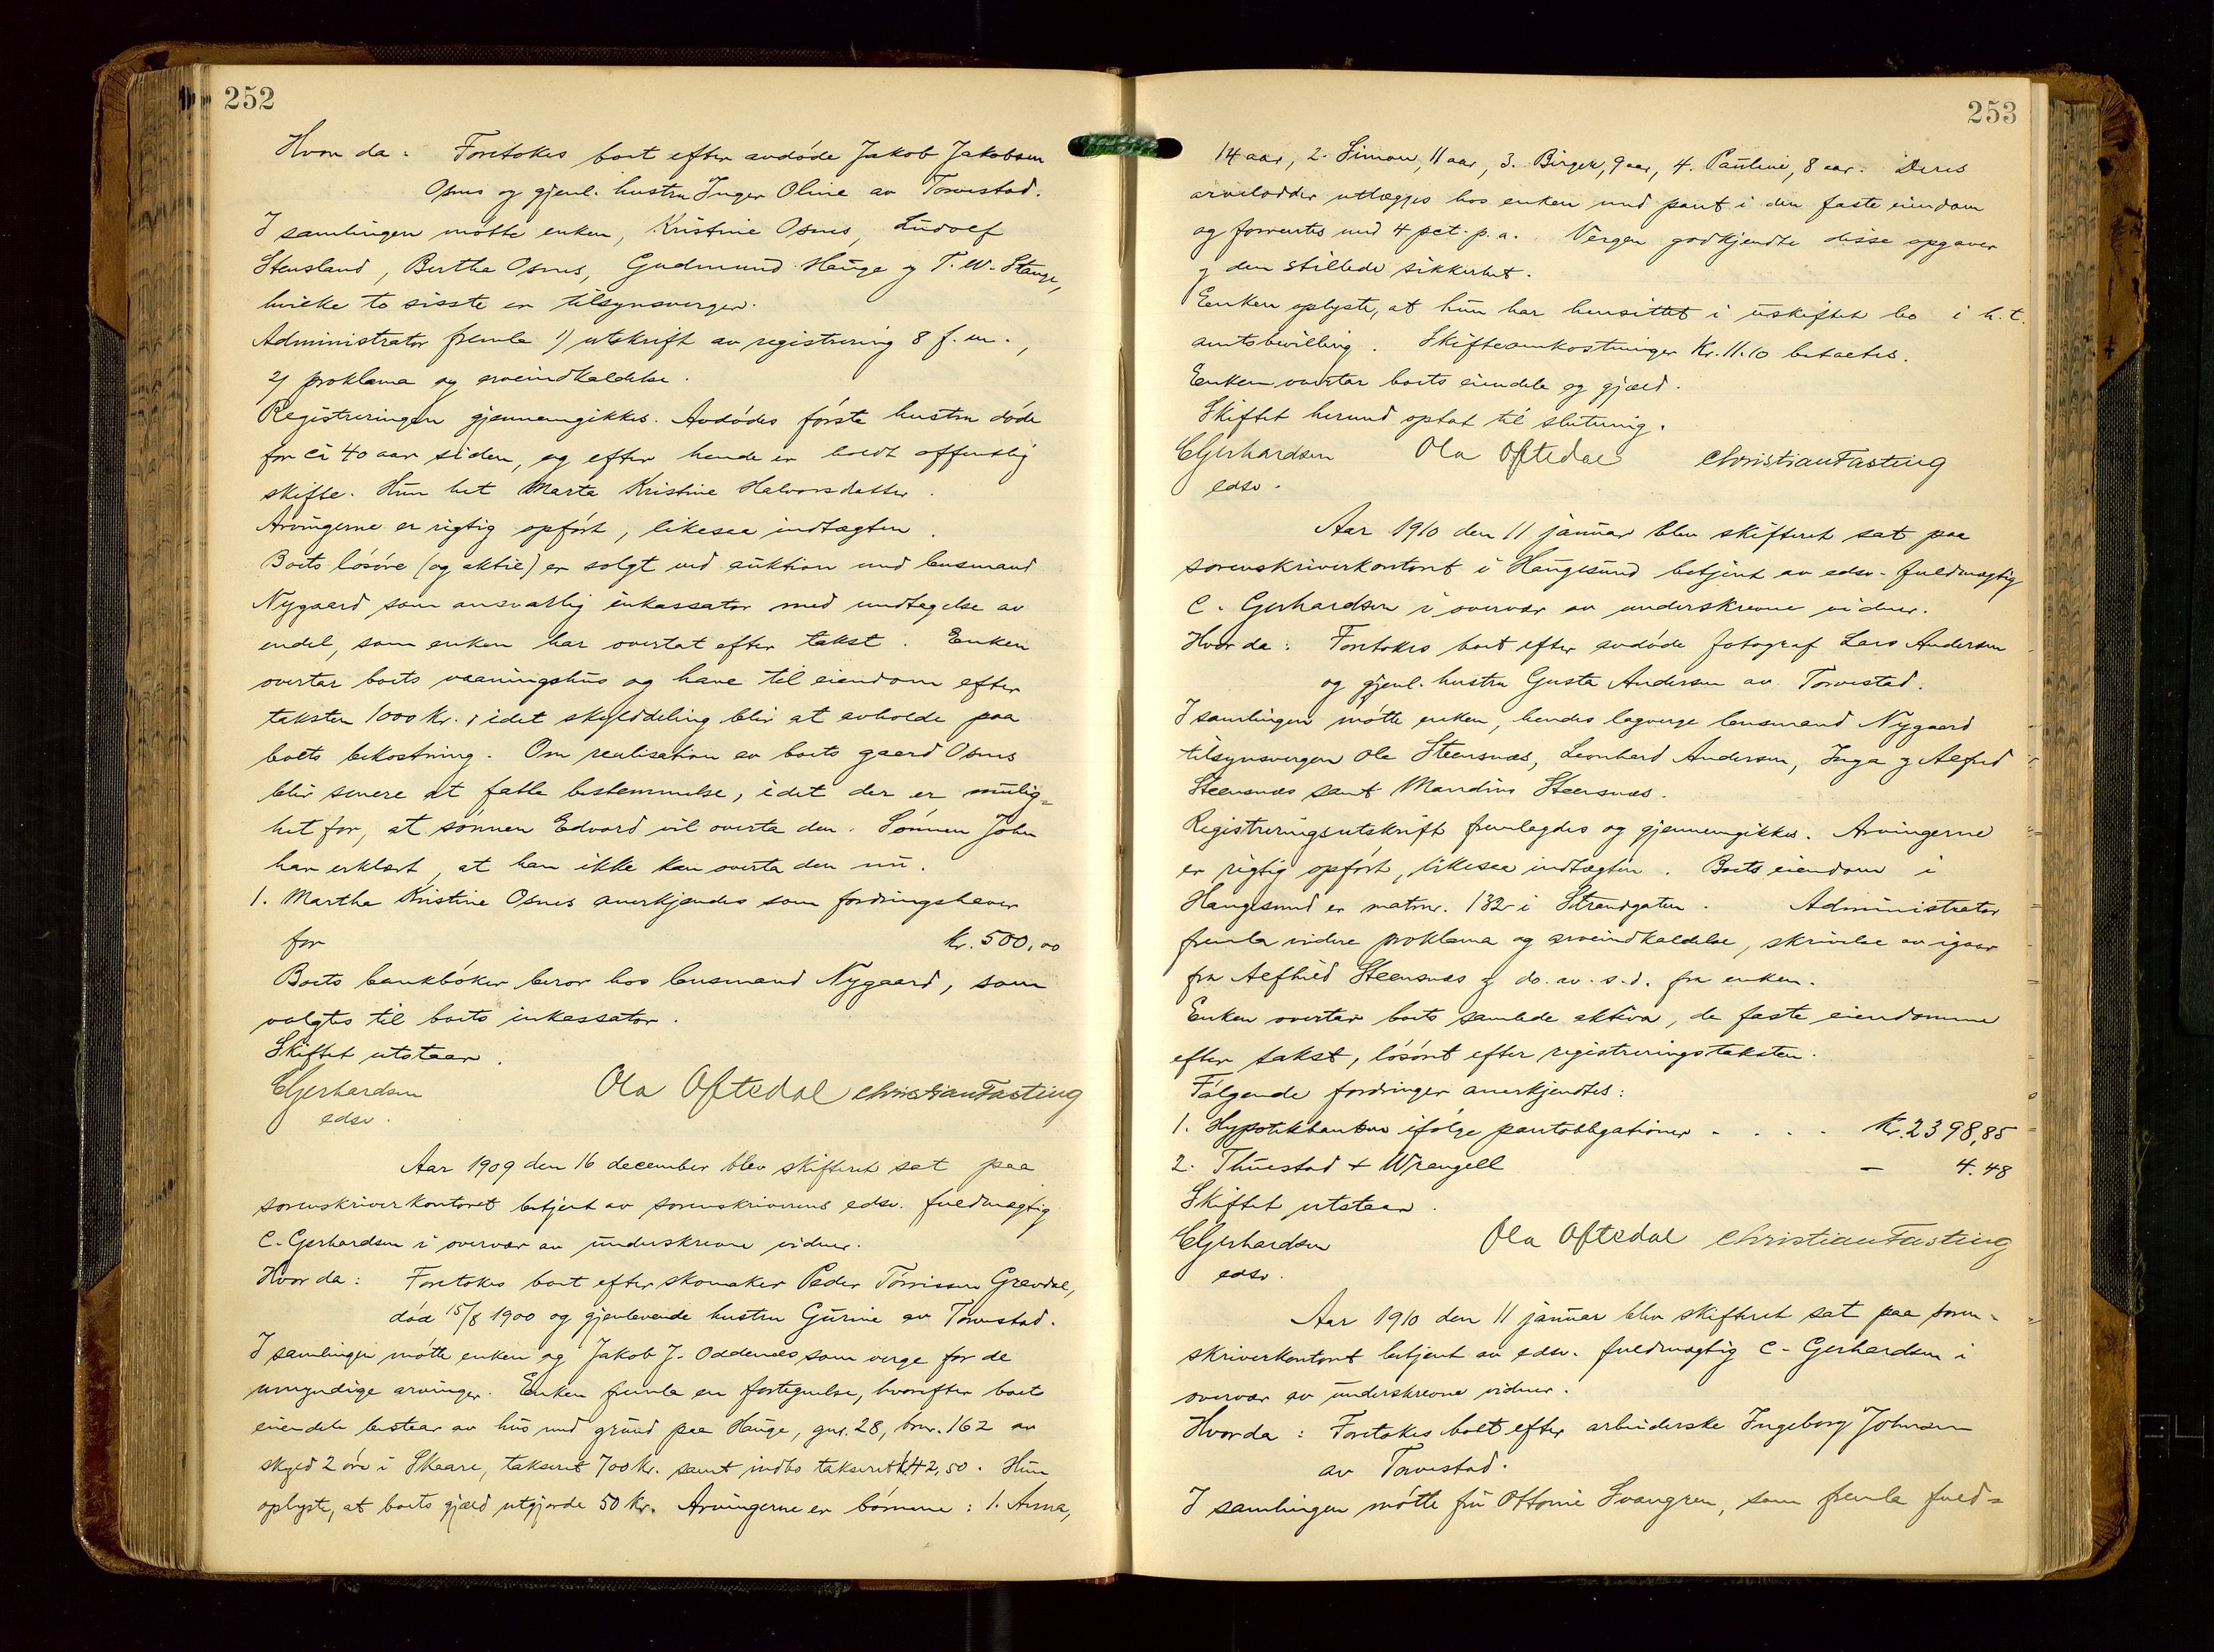 252
Hvor da: Foretokes boet efter avdøde Jakob Jakobsen
Osnes og gjenl. hustru Inger Oline av Torvestad.
I samlingen møtte enken, Kristine Osnes, Ludolf
Stensland, Berthe Osnes, Gudmund Hauge og T. W. Stange,
hvilke to sisste er tilsynsverger.
Administrator fremla 1) utskrift av registrering 8 f. m.,
2) proklama og arveindkaldelse.
Registreringen gjennemgikkes. Avdødes første hustru døde
for ci 40 aar siden, og efter hende er holdt offentlig
skifte. Hun het Marta Kristine Halvorsdatter.
Arvingerne er rigtig opført, likesaa indtægten.
Boets løsøre (og aktie) er solgt ved auktion med lensmand
Nygaard som ansvarlig inkassator med undtagelse av
endel, som enken har overtat efter takst. Enken
overtar boets vaaningshus og have til eiendom efter
taksten 1000 kr., idet skylddeling blir at avholde paa
boets bekostning. Om realisation av boets gaard Osnes
blir senere at fatte bestemmelse, idet der er mulig-
het for, at sønnen Edvard vil overta den. Sønnen John
har erklært, at han ikke kan overta den nu.
1. Martha Kristine Osnes anerkjendes som fordringshaver
for kr. 500,00
Boets bankbøker beror hos lensmand Nygaard, som
valgtes til boets inkassator.
Skiftet utstaar.
CGerhardsen Ola Oftedal Christian Fasting
edsv.
Aar 1909 den 16 december blev skifteret sat paa
sorenskriverkontoret betjent av sorenskriverens edsv. fuldmægtig
C. Gerhardsen i overvær av underskrevne vidner.
Hvor da: Foretokes boet efter skomaker Peder Tørrissen Grevdal,
død 15/8 1900 og gjenlevende hustru Gurine av Torvestad.
I samlingen møtte enken og Jakob J. Oddenes som verge for de
umyndige arvinger. Enken fremla en fortegnelse, hvorefter boets
eiendele bestaar av hus med grund paa Hauge, gnr. 28, bnr. 162 av
skyld 2 øre i Skaare, taksert 700 kr. samt indbo taksert kr. 42,50. Hun
oplyste, at boets gjæld utgjorde 50 kr. Arvingerne er børnene: 1. Anna,
253
14 aar, 2. Simon, 11 aar, 3. Birger, 9 aar, 4. Pauline, 8 aar. Deres
arvelodder utlægges hos enken med pant i den faste eiendom
og forrentes med 4 pct. p. a. Vergen godkjendte disse opgaver
og den stillede sikkerhet.
Enken oplyste, at hun har hensittet i uskiftet bo i h. t.
amtsbevilling. Skifteomkostninger kr. 11.10 betaltes.
Enken overtar boets eiendele og gjæld.
Skiftet herved optat til slutning.
CGerhardsen Ola Oftedal Christian Fasting
edsv.
Aar 1910 den 11 januar blev skifteret sat paa
sorenskriverkontoret i Haugesund betjent av edsv. fuldmægtig
C. Gerhardsen i overvær av underskrevne vidner.
Hvor da: Foretokes boet efter avdøde fotograf Lars Andersen
og gjenl. hustru Gusta Andersen av Torvestad.
I samlingen møtte enken, hendes lagverge lensmand Nygaard
tilsynsvergen Ole Steensnæs, Leonhard Andersen, Inga og Alfred
Steensnæs samt Mandius Steensnæs.
Registreringsutskrift fremlagdes og gjennemgikkes. Arvingerne
er rigtig opført, likesaa indtægten. Boets eiendom i
Haugesund er matrnr. 132 i Strandgaten. Administrator
fremla videre proklama og arveindkaldelse, skrivelse av igaar
fra Alfhild Steensnæs og do. av s. d. fra enken.
Enken overtar boets samlede aktiva, de faste eiendomme
efter takst, løsøret efter registreringstaksten.
Følgende fordringer anerkjendtes:
1. Hypotekbanken ifølge pantobligationer . . . . kr. 2398,85
2. Thuestad + Wrangell — 4.48
Skiftet utstaar.
CGerhardsen Ola Oftedal Christian Fasting
edsv.
Aar 1910 den 11 januar blev skifteret sat paa soren-
skriverkontoret betjent av edsv. fuldmægtig C. Gerhardsen i
overvær av underskrevne vidner.
Hvor da: Foretokes boet efter arbeiderske Ingeborg Johnsen
av Torvestad.
I samlingen møtte fru Ottonie Svangren, som fremla fuld-